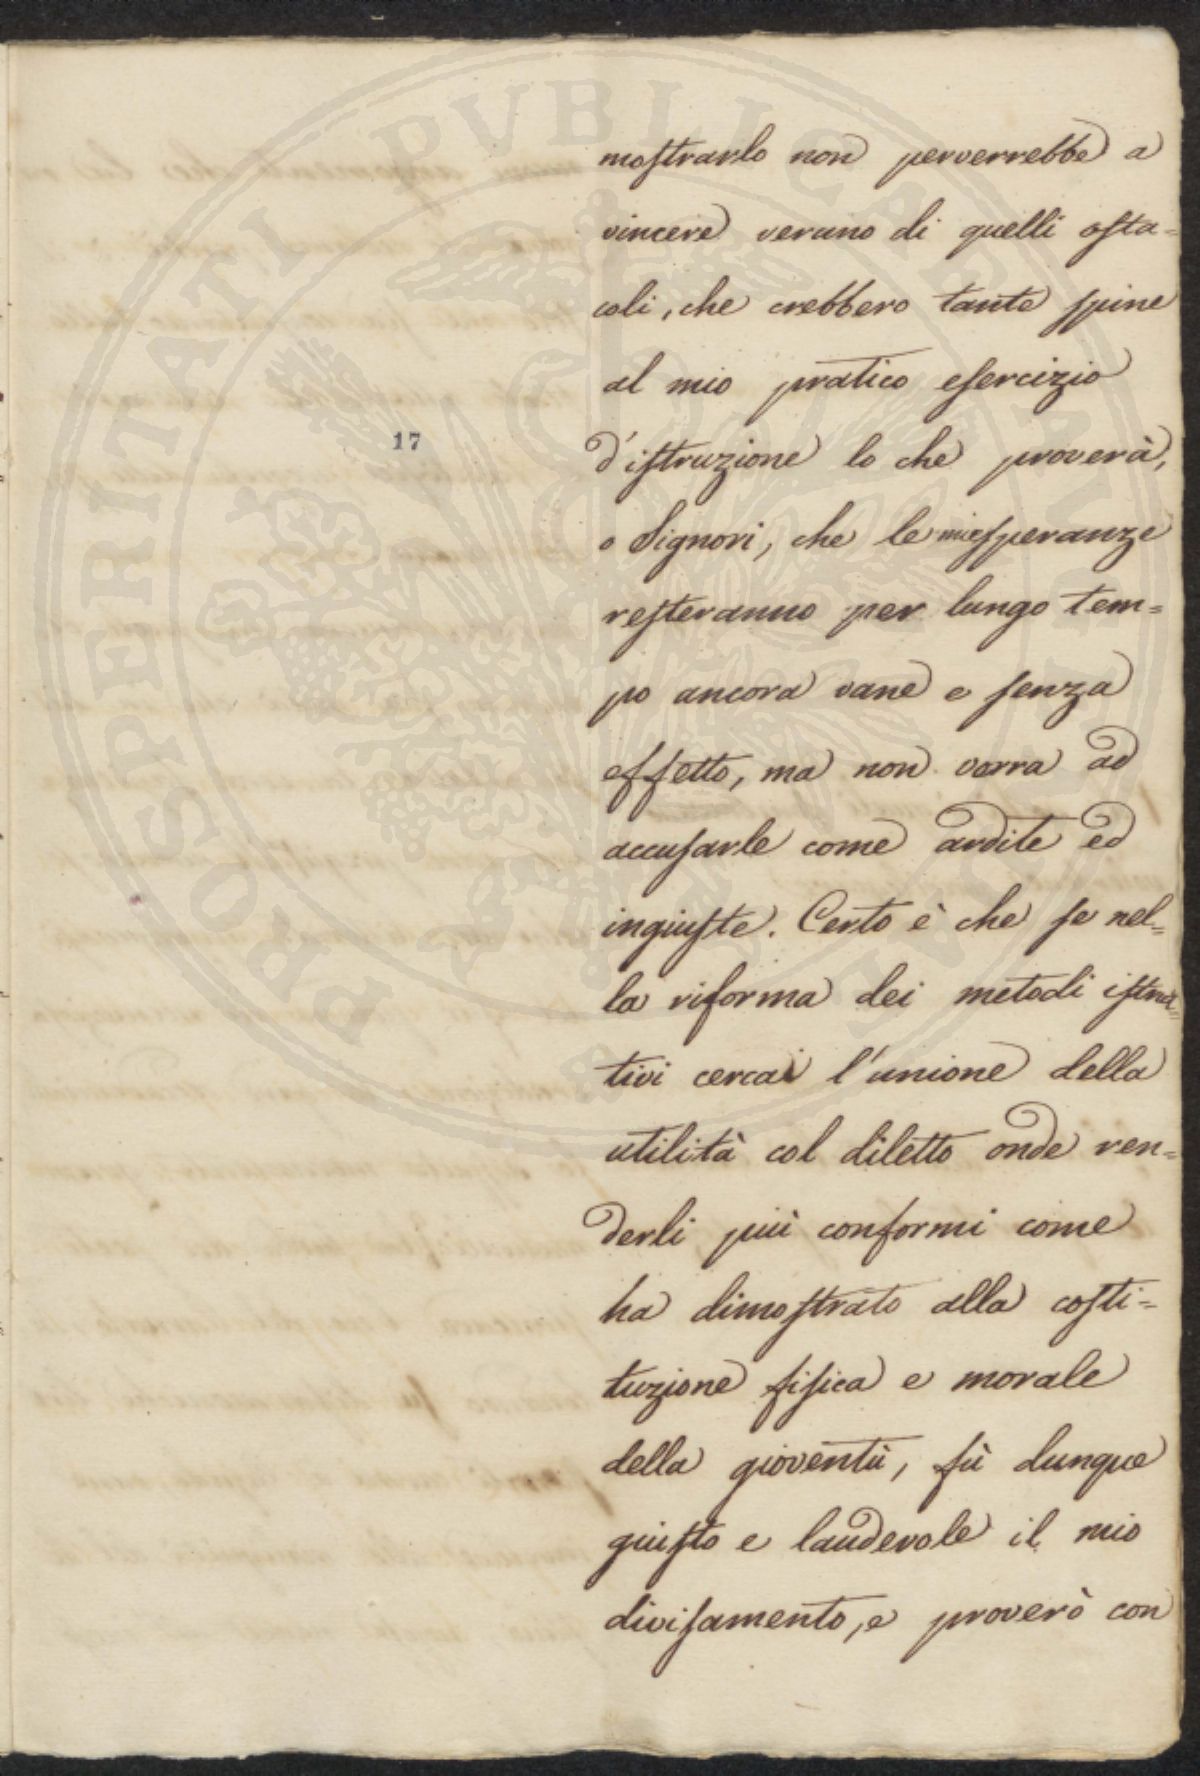 PROSPERITATI PVBLICAE AVGENDAE
mostrarlo non perverrebbe a
vincere veruno di quelli osta=
coli, che crebbero tante spine
al mio pratico esercizio
17
d'istruzione lo che proverà,
o Signori, che le mie speranze
resteranno per lungo tem=
po ancora vane e senza
effetto, ma non verra ad
accusarle come ardite ed
ingiuste. Certo è che se nel=
la riforma dei metodi istrut=
tivi cercai l'unione della
utilità col diletto onde ren=
derli più conformi come
ha dimostrato alla costi=
tuzione fisica e morale
della gioventù, fù dunque
giusto e laudevole il mio
divisamento, e proverò con